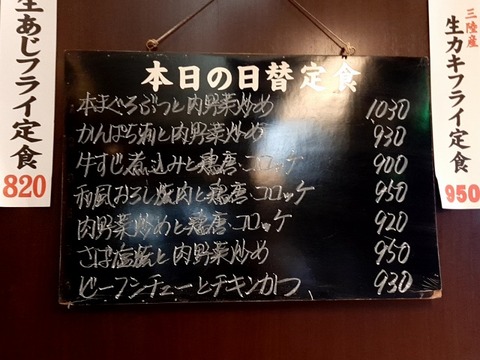 生あじフライ定食
820
本日の日替定食
本まぐろぶつと肉野菜炒め 1030
かんぱち刺と肉野菜炒め 930
牛すじ煮込みと鶏唐、コロッケ 900
和風おろし焼肉と鶏唐、コロッケ 950
肉野菜炒めと鶏唐、コロッケ 920
さば塩焼と肉野菜炒め 950
ビーフシチューとチキンかつ 930
三陸産
生カキフライ定食
950